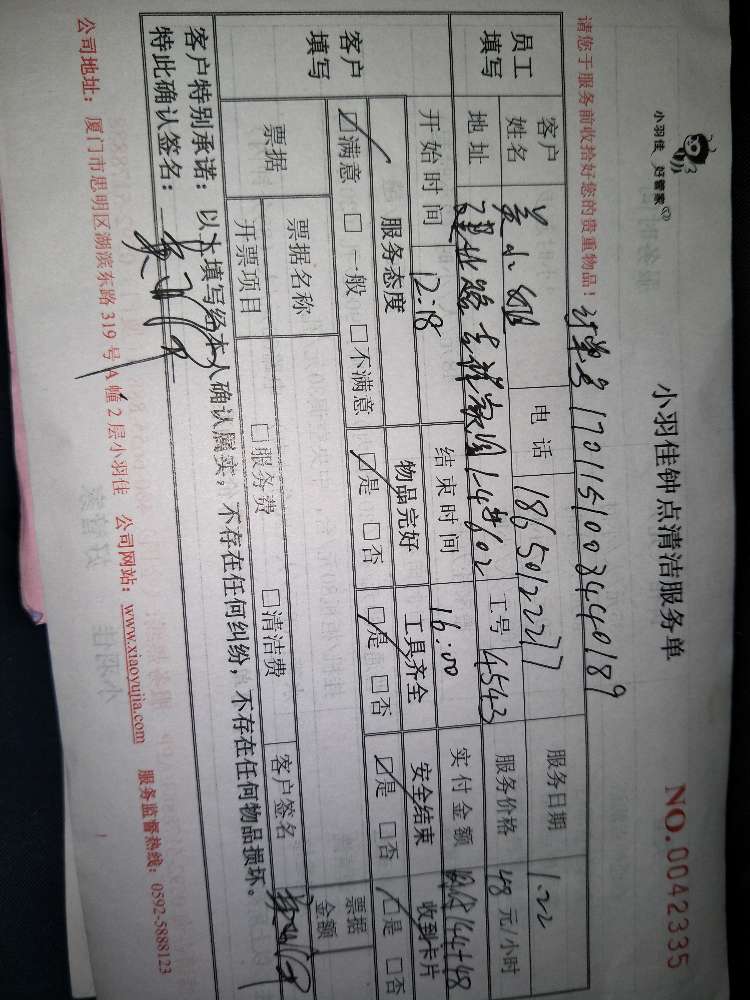 小羽佳 好管家
小羽佳钟点清洁服务单
NO.0042335
请您于服务前收拾好您的贵重物品!
1701151003440189
员工填写
客户姓名
小姐
电话
18650122277
服务日期
1.22
地址
工号
4543
服务价格
48 元/小时
客户填写
开始时间
12:18
结束时间
16:00
实付金额
144+48
服务态度
物品完好
工具齐全
安全结束
收到卡片
☑满意 □一般 □不满意
☑是 □否
☑是 □否
☑是 □否
☑是 □否
票据
票据名称
票据金额
开票项目
□服务费
□清洁费
客户签名
客户特别承诺:以上填写经本人确认属实,不存在任何纠纷,不存在任何物品损坏。
特此确认签名:
公司地址:厦门市思明区湖滨东路 319 号 A 幢 2 层小羽佳 公司网站:www.xiaoyujia.com 服务监督热线:0592-5888123